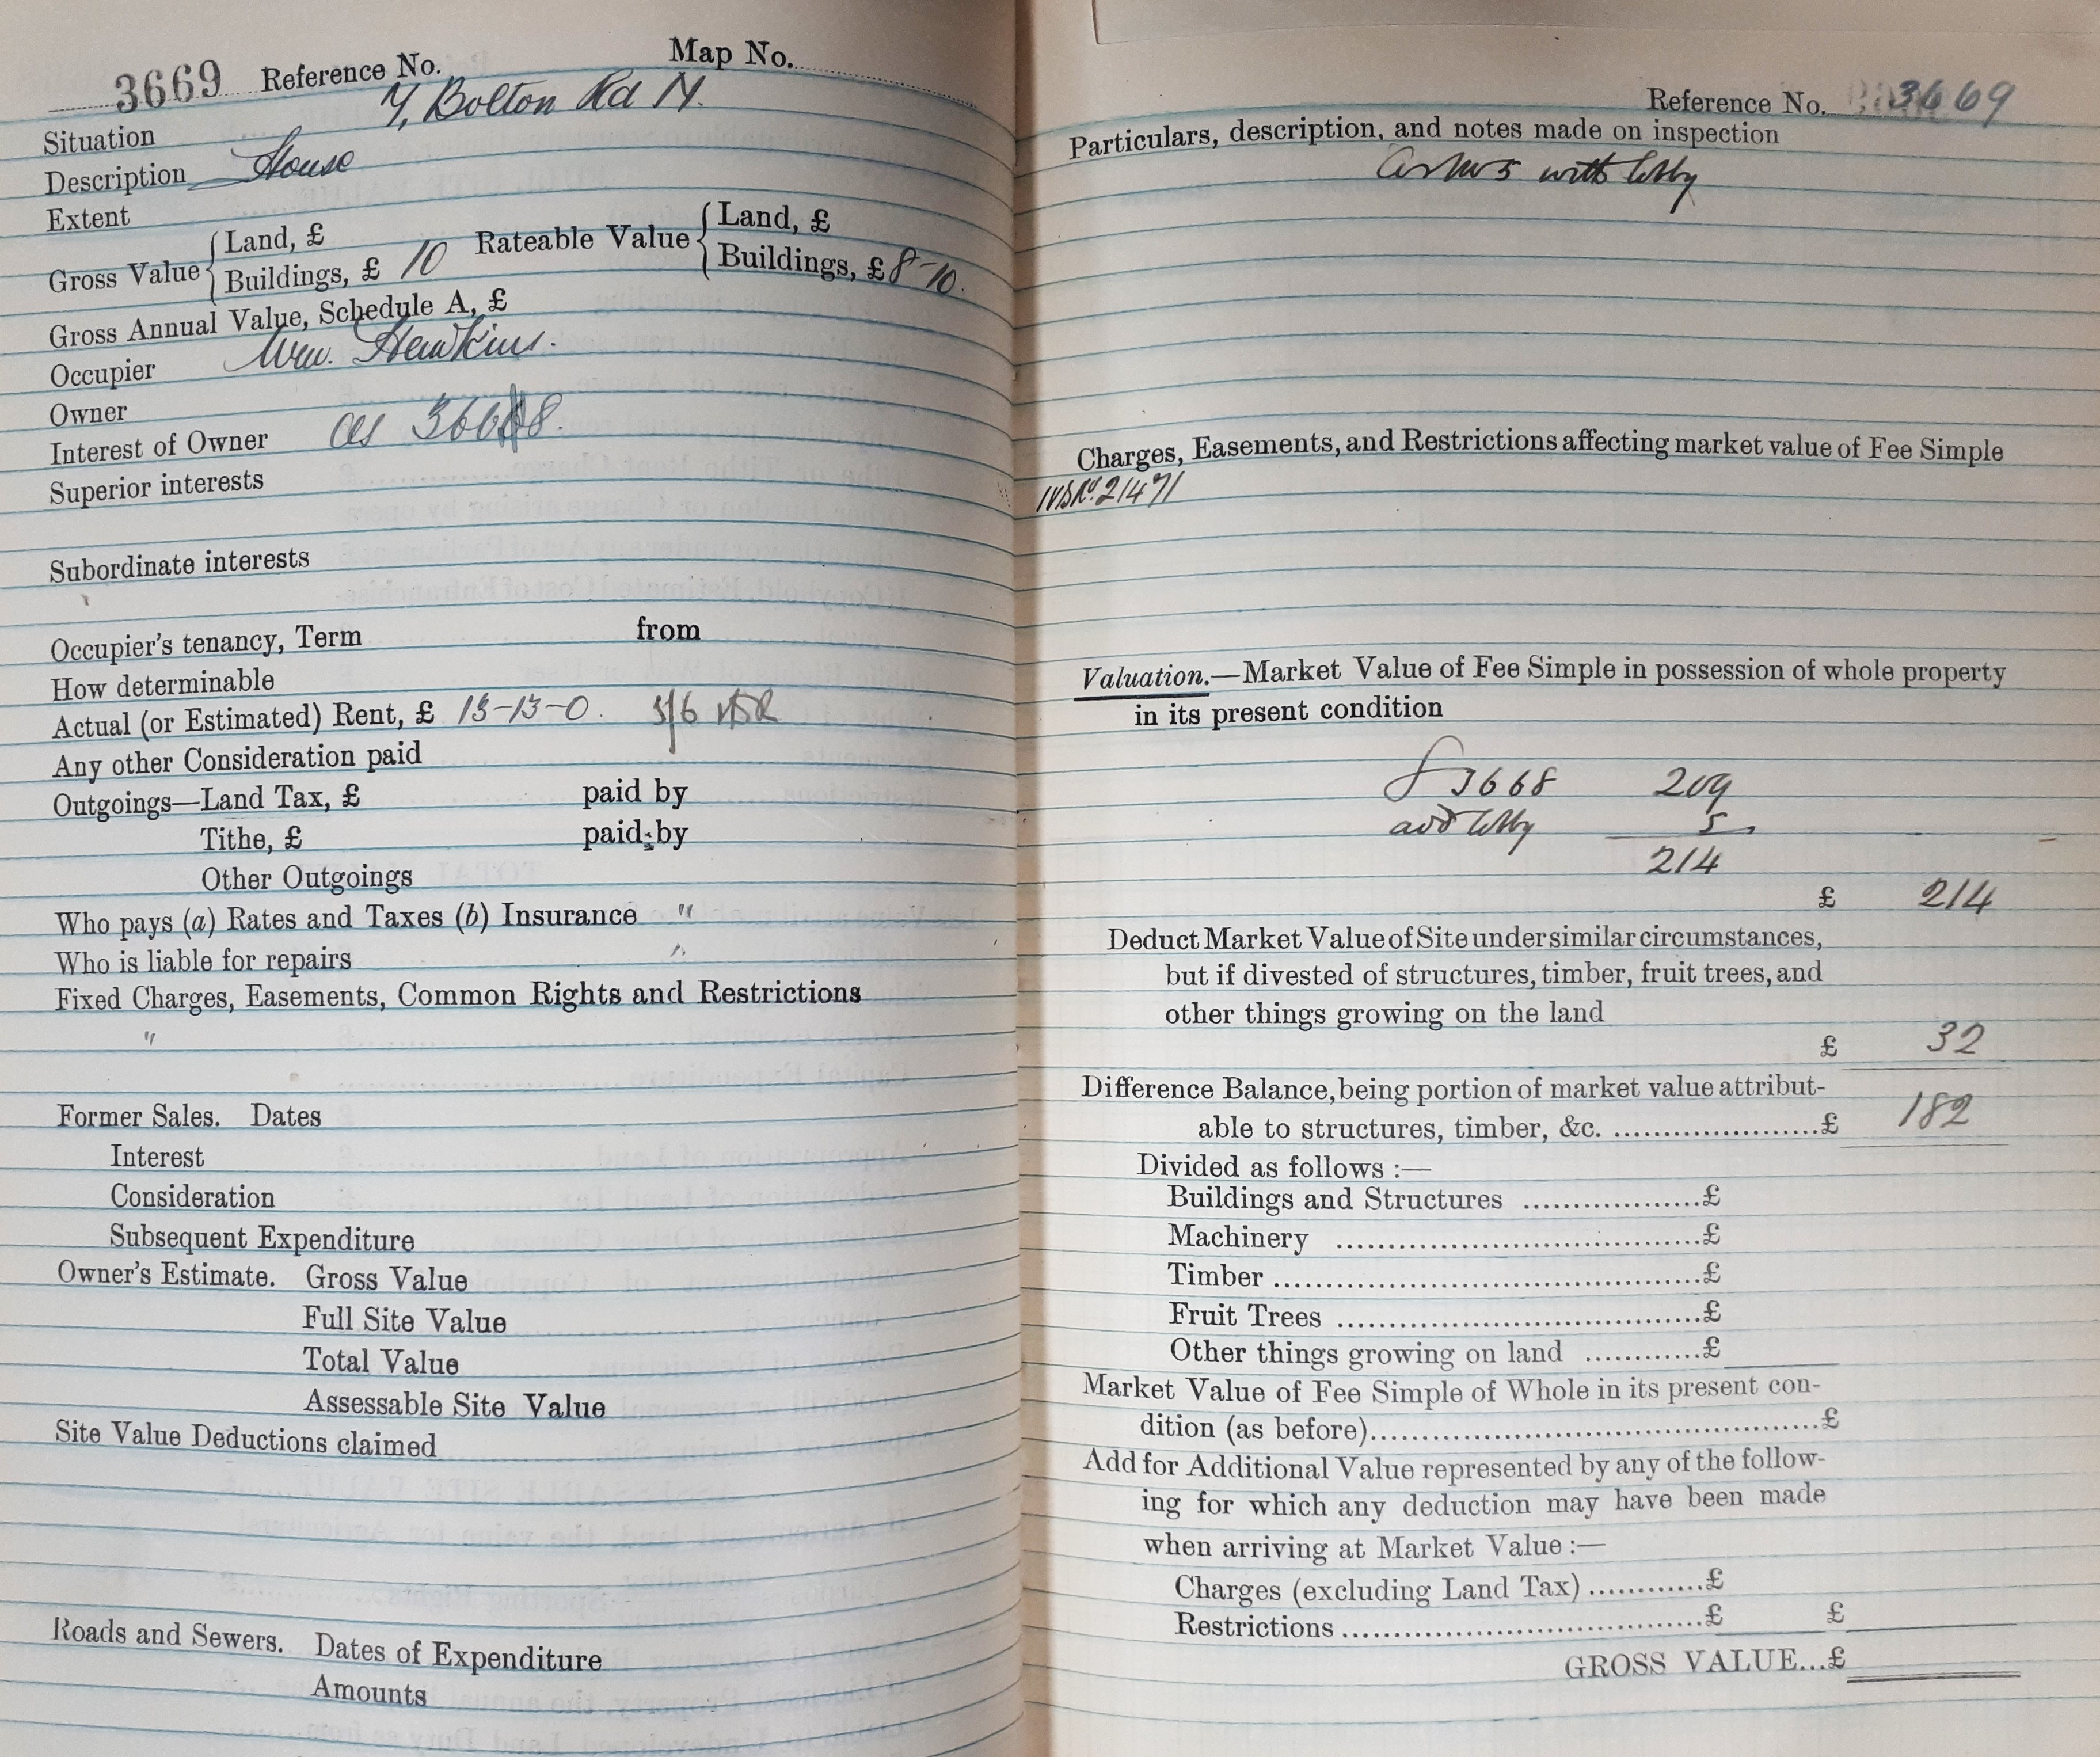 3669 Reference No. Map No.
Situation 7, Bolton Rd N.
Description House
Extent
Gross Value { Land, £ Buildings, £ 10 Rateable Value { Land, £ Buildings, £ 8-10.
Gross Annual Value, Schedule A, £
Occupier Wm. Hawkins.
Owner
Interest of Owner as 3668.
Superior interests
Subordinate interests
Occupier's tenancy, Term from
How determinable
Actual (or Estimated) Rent, £ 13-13-0. 5/6
Any other Consideration paid
Outgoings—Land Tax, £ paid by
Tithe, £ paid by
Other Outgoings
Who pays (a) Rates and Taxes (b) Insurance "
Who is liable for repairs "
Fixed Charges, Easements, Common Rights and Restrictions
"
Former Sales. Dates
Interest
Consideration
Subsequent Expenditure
Owner's Estimate. Gross Value
Full Site Value
Total Value
Assessable Site Value
Site Value Deductions claimed
Roads and Sewers. Dates of Expenditure
Amounts
Reference No. 3669
Particulars, description, and notes made on inspection
with lobby
Charges, Easements, and Restrictions affecting market value of Fee Simple
21471
Valuation.—Market Value of Fee Simple in possession of whole property
in its present condition
3668 209
add lobby 5
214
£ 214
Deduct Market Value of Site under similar circumstances,
but if divested of structures, timber, fruit trees, and
other things growing on the land
£ 32
Difference Balance, being portion of market value attribut-
able to structures, timber, &c. ......................£ 182
Divided as follows :—
Buildings and Structures ...................£
Machinery .......................................£
Timber .............................................£
Fruit Trees .......................................£
Other things growing on land ............£
Market Value of Fee Simple of Whole in its present con-
dition (as before)................................................£
Add for Additional Value represented by any of the follow-
ing for which any deduction may have been made
when arriving at Market Value :—
Charges (excluding Land Tax) ............£
Restrictions .......................................£ £
GROSS VALUE...£